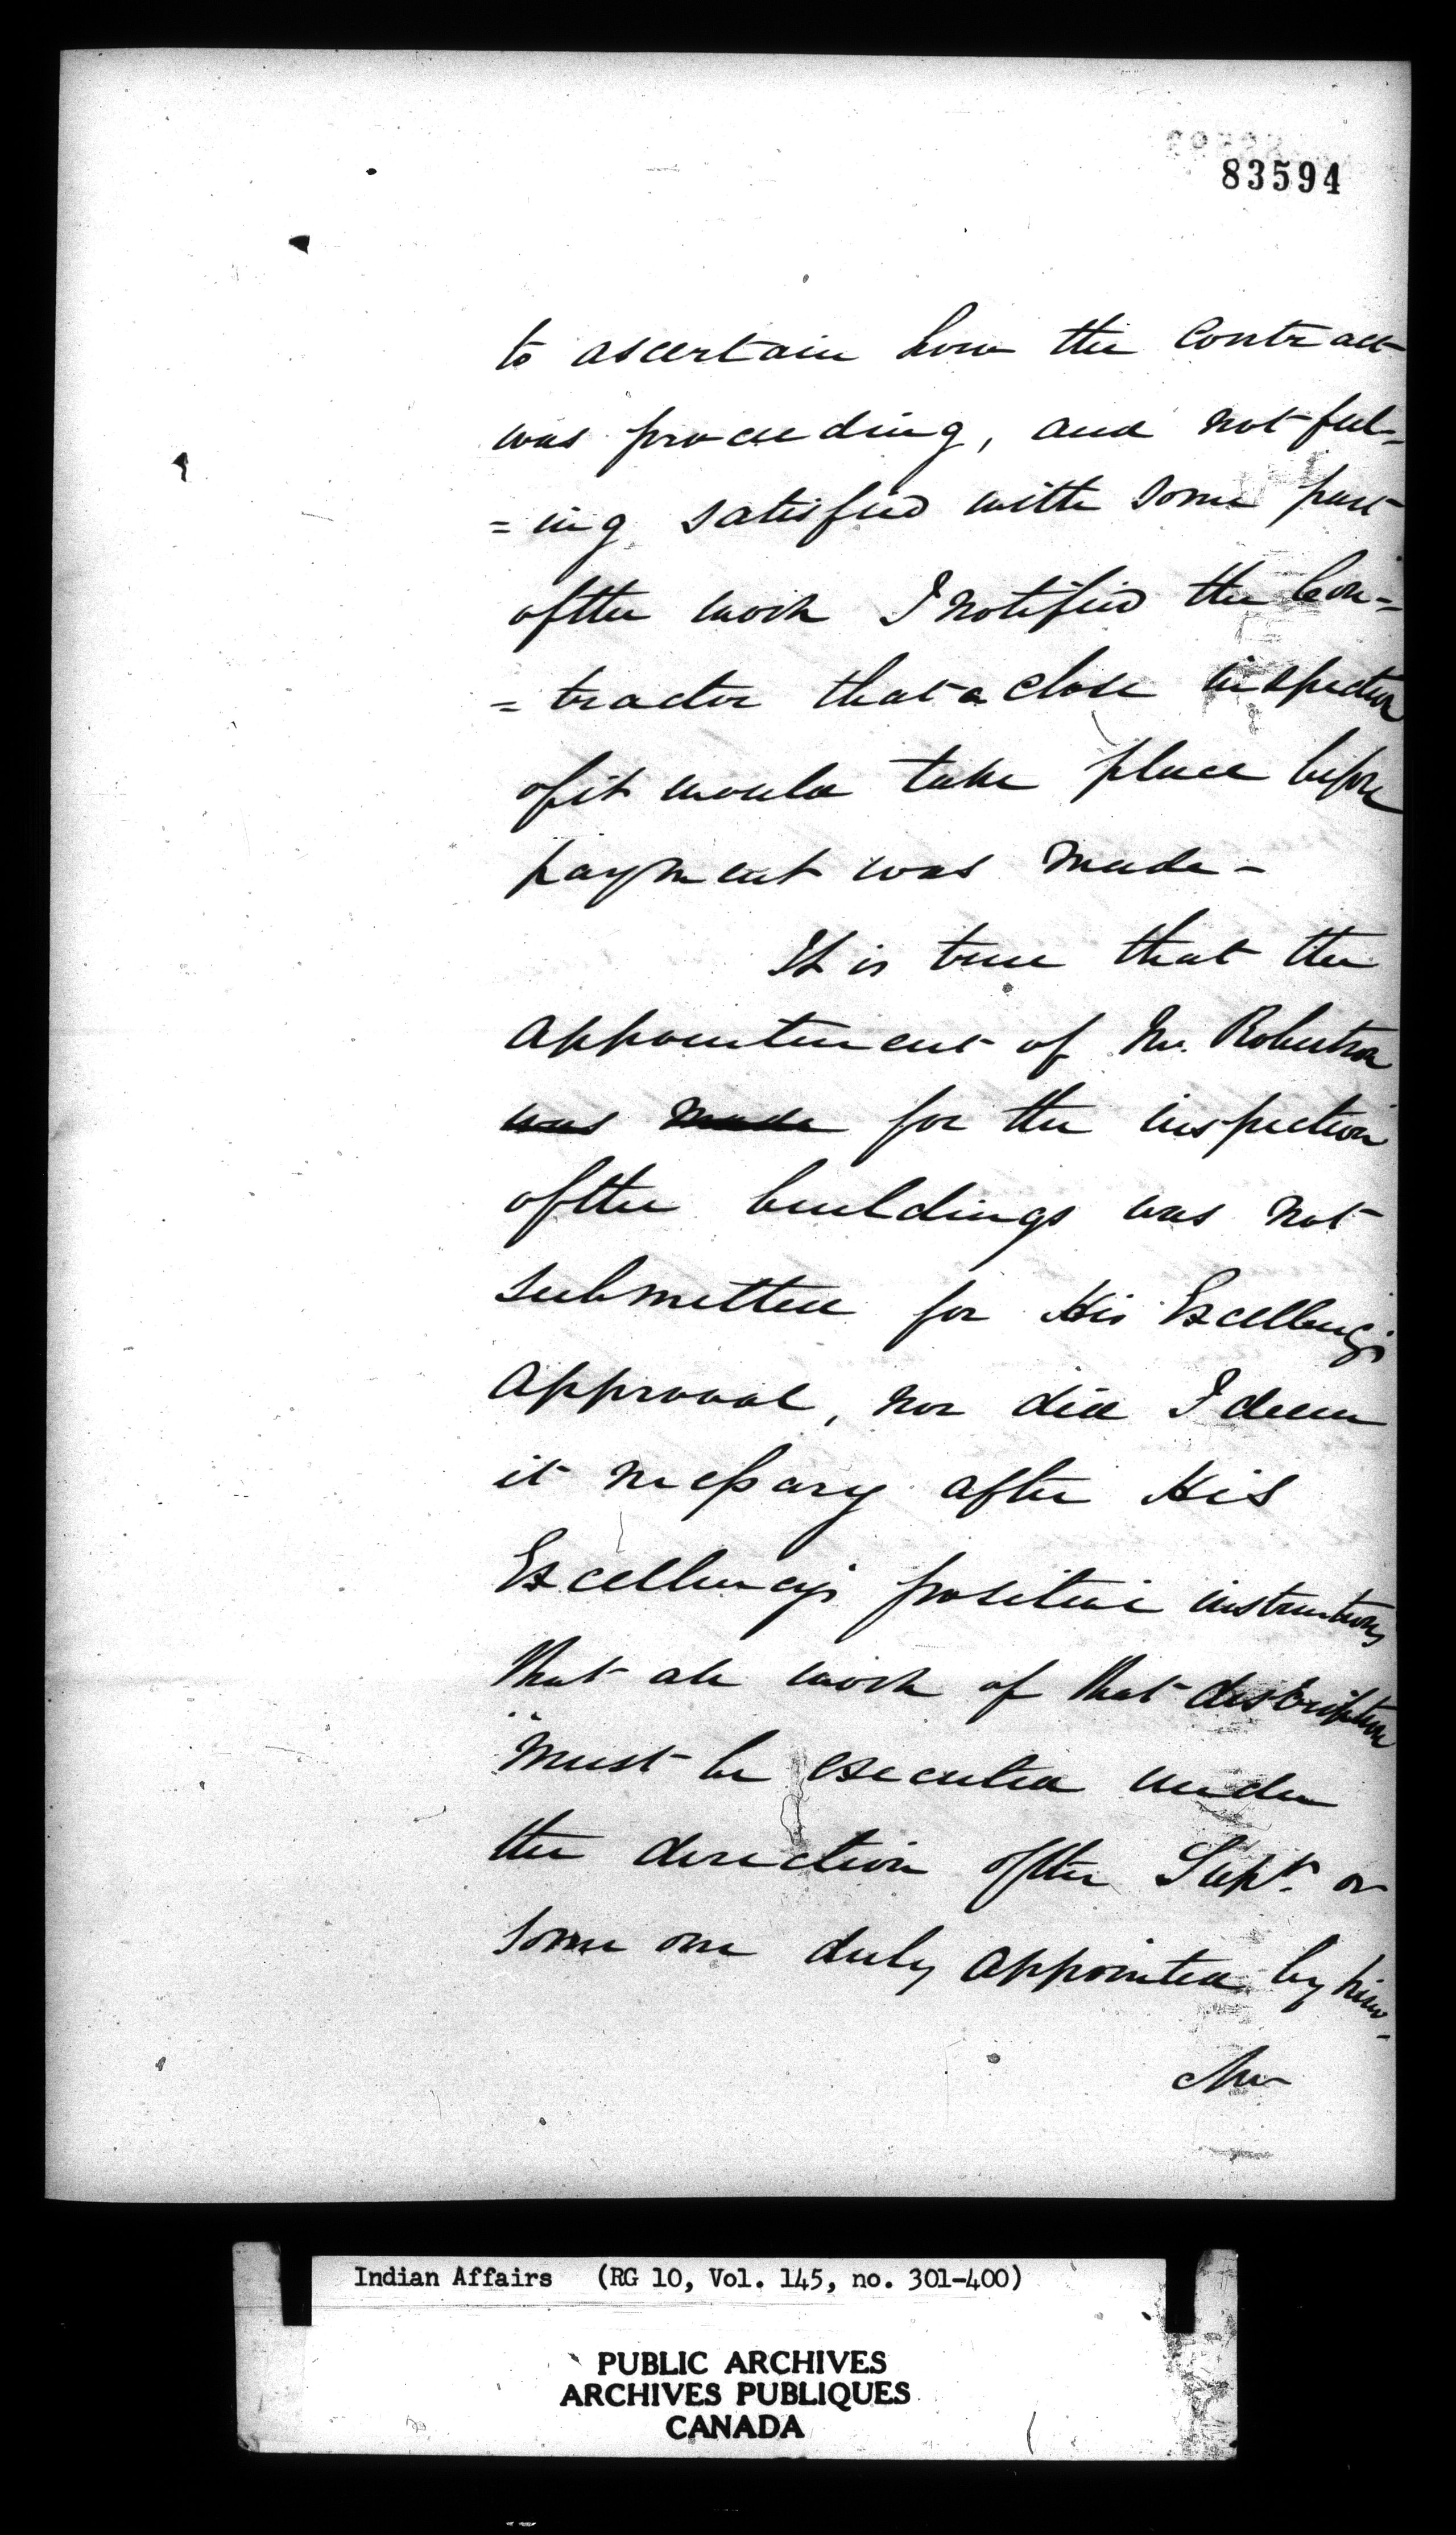 83594
to ascertain how the Contract
was proceeding, and not feel=
=ing satisfied with some part
of the work I notified the Con=
=tractor that a close inspection
of it would take place before
payment was made -
It is true that the
appointment of Mr. Robertson
was made for the inspection
of the buildings was not
submitted for His Excellency's
approval, nor did I deem
it necessary after His
Excellency's positive instructions
that all work of that description
"must be executed under
the direction of the Supt. or
some one duly appointed by him -
Mr
Indian Affairs (RG 10, Vol. 145, no. 301-400)
PUBLIC ARCHIVES
ARCHIVES PUBLIQUES
CANADA